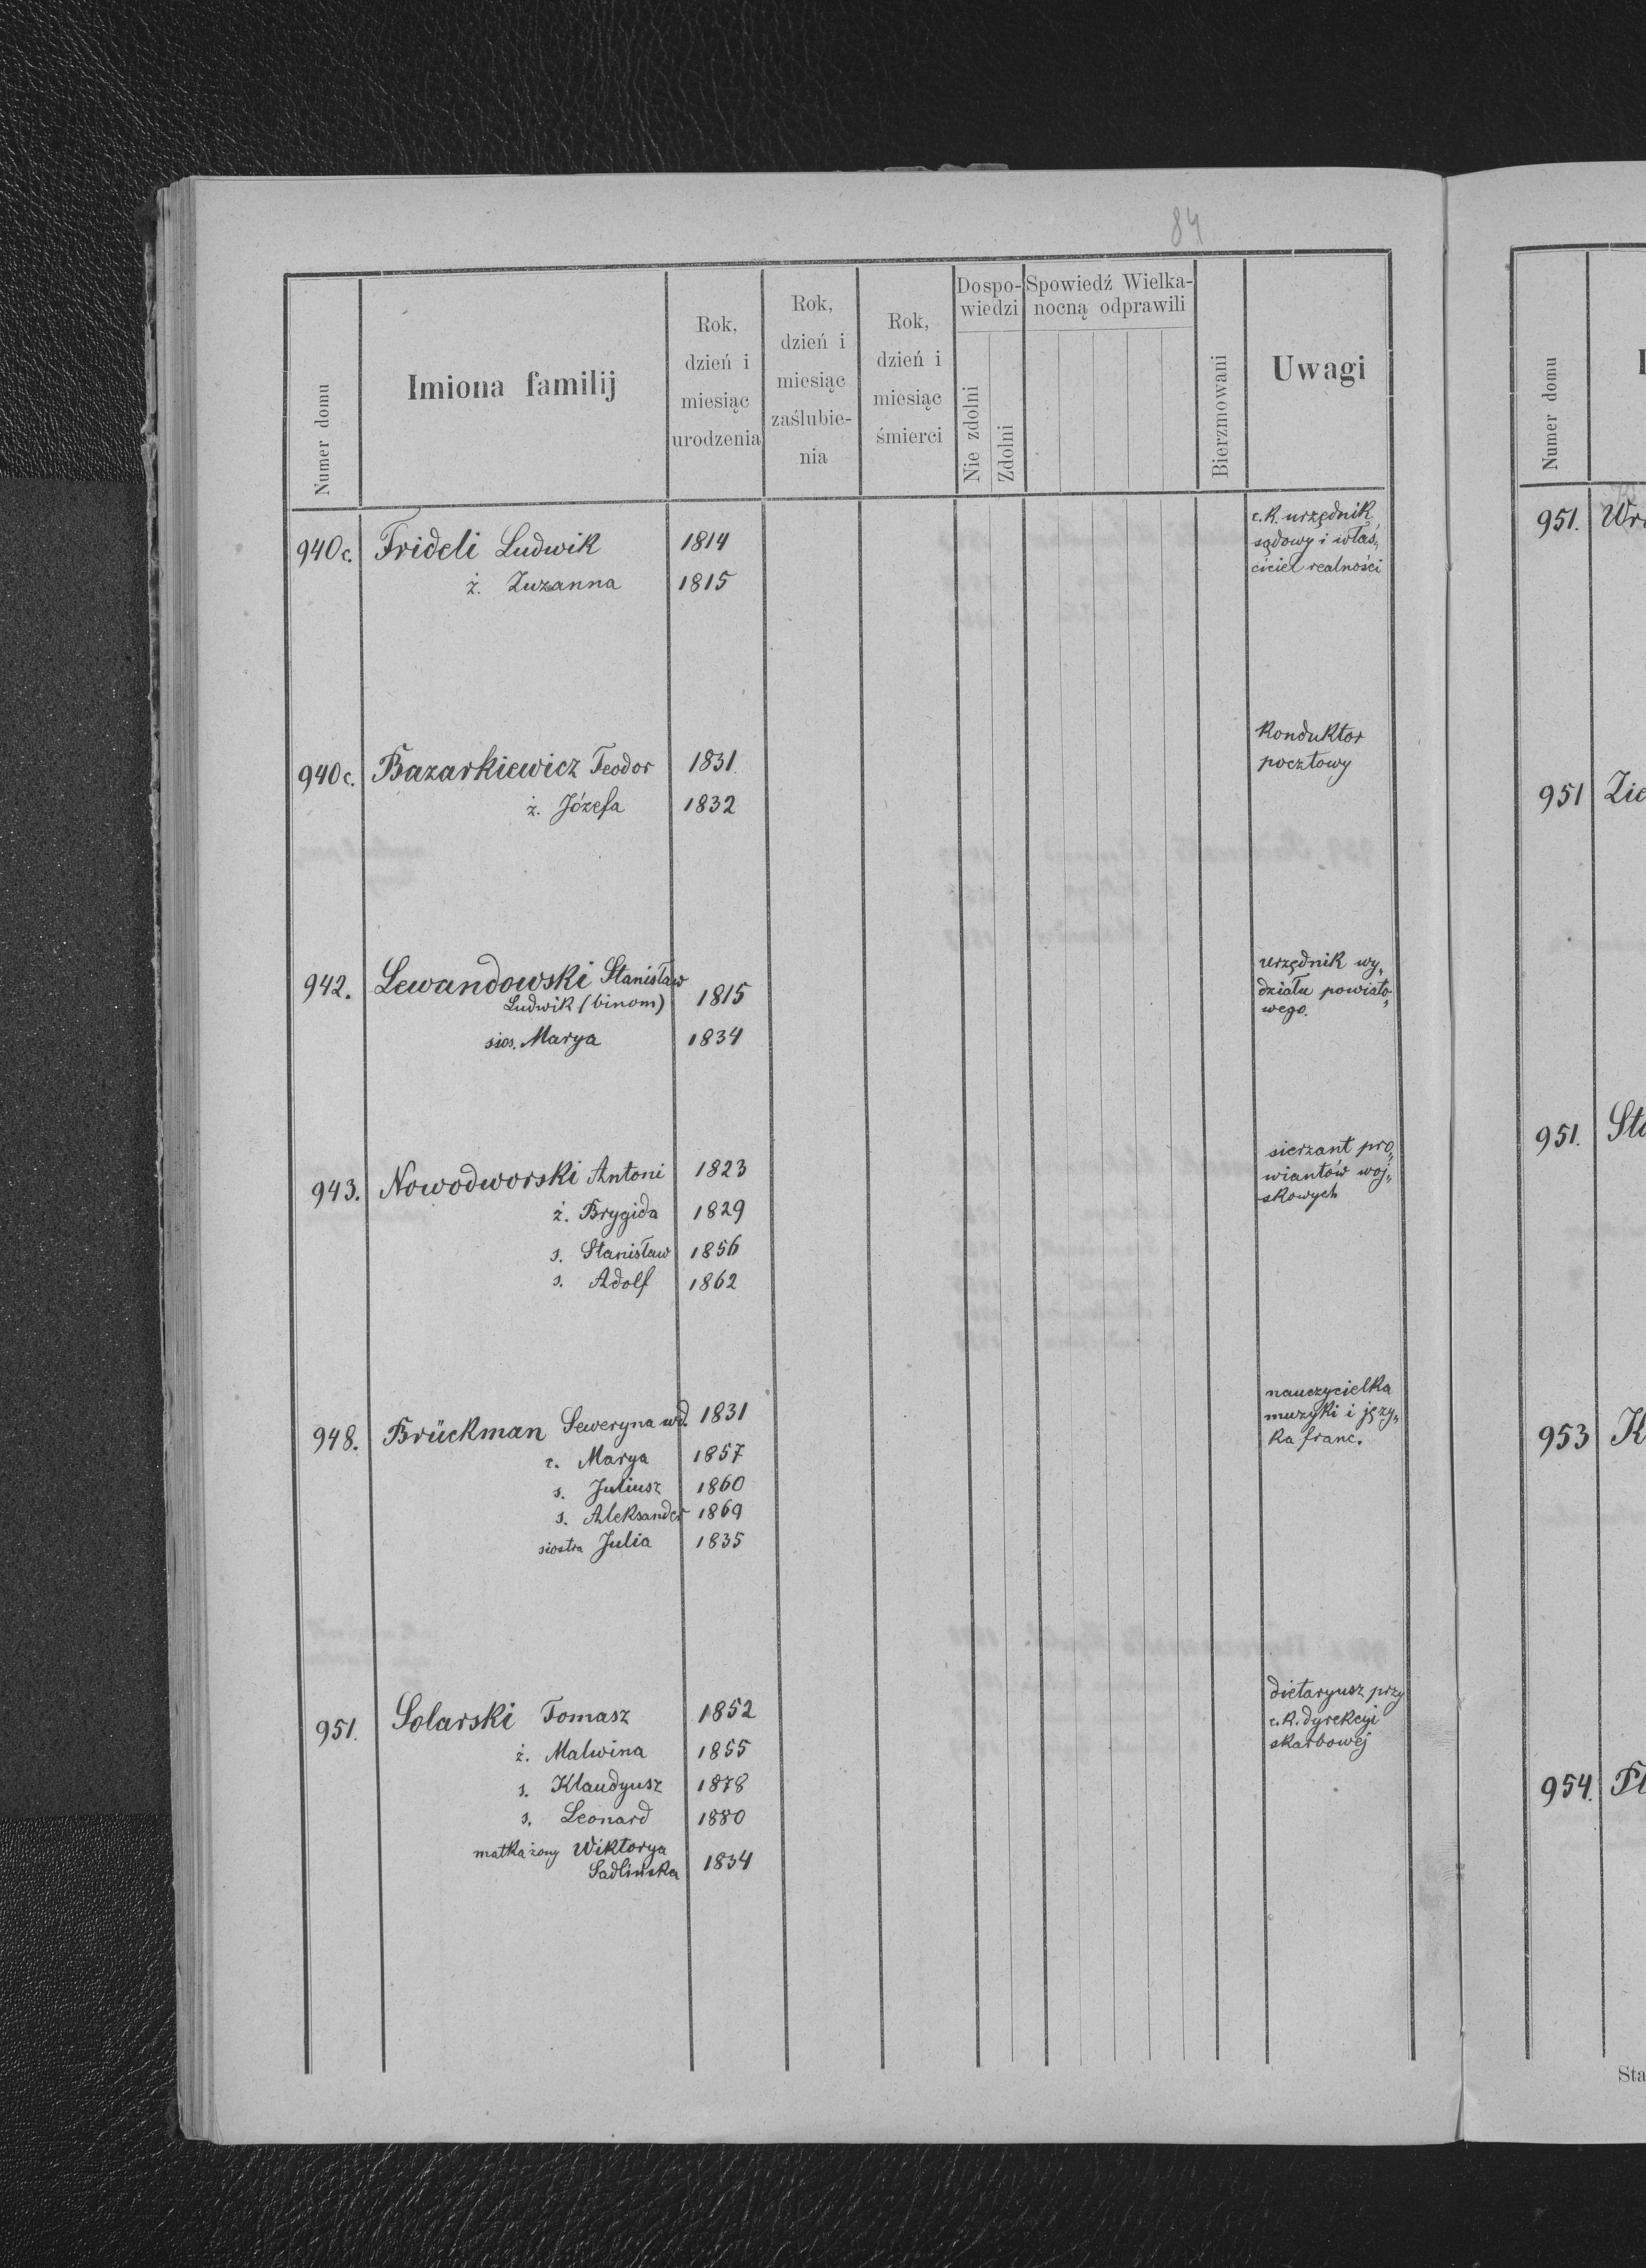 84
Numer domu
Imiona familij
Rok,
dzień i
miesiąc
urodzenia
Rok,
dzień i
miesiąc
zaślubie-
nia
Rok,
dzień i
miesiąc
śmierci
Dospo-
wiedzi
Nie zdolni
Zdolni
Spowiedź Wielka-
nocną odprawili
Bierzmowani
Uwagi
940c. Frideli Ludwik 1814
ż. Zuzanna 1815
c.k. urzędnik
sądowy i właś„
ciciel realności
940c. Bazarkiewicz Teodor 1831.
ż. Józefa 1832
Konduktor
pocztowy
942. Lewandowski Stanisław
Ludwik (binom) 1815
sios. Marya 1834
urzędnik wy„
działu powiato„
wego.
943. Nowodworski Antoni 1823
ż. Brygida 1829
s. Stanisław 1856
s. Adolf 1862
sierzant pro„
wiantów woj„
skowych
948. Brückman Seweryna wd. 1831
c. Marya 1857
s. Juliusz 1860
s. Aleksander 1869
siostra Julia 1835
nauczycielka
muzyki i języ„
ka franc.
951. Solarski Tomasz 1852
ż. Malwina 1855
s. Klaudyusz 1878
s. Leonard 1880
matka żony Wiktorya
Sadlińska 1834
dietaryusz przy
c.k. dyrekcyi
skarbowej
Numer domu
951. Wr
951 Zie
951. Sta
953 K
954. Pl
Sta